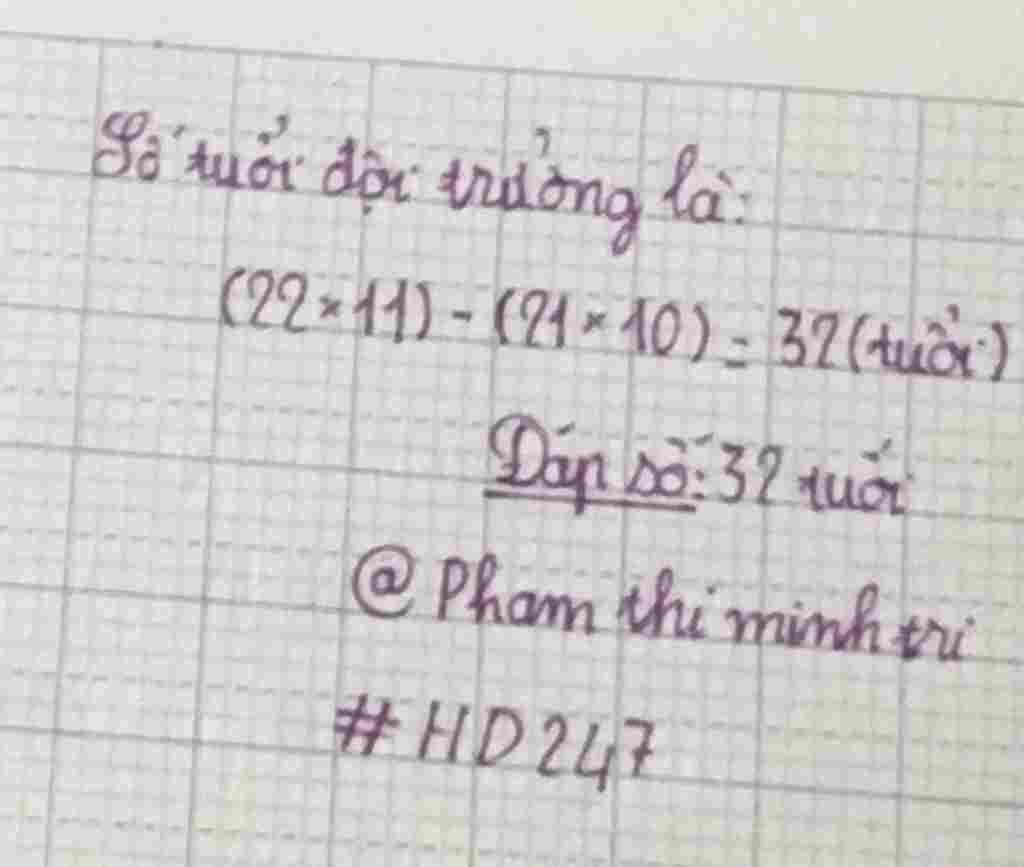 Số tuổi đội trưởng là:
(22 × 11) - (21 × 10) = 32 (tuổi)
Đáp số: 32 tuổi
@ Pham thi minh tri
# HD247